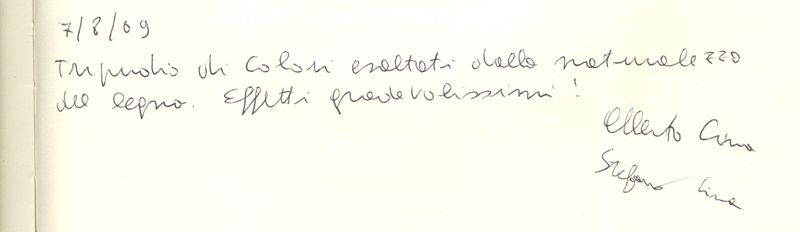 7/8/09
Tripudio di colori esaltati dalla naturalezza
del legno. Effetti gradevolissimi!
Alberto Cina
Stefano Cina